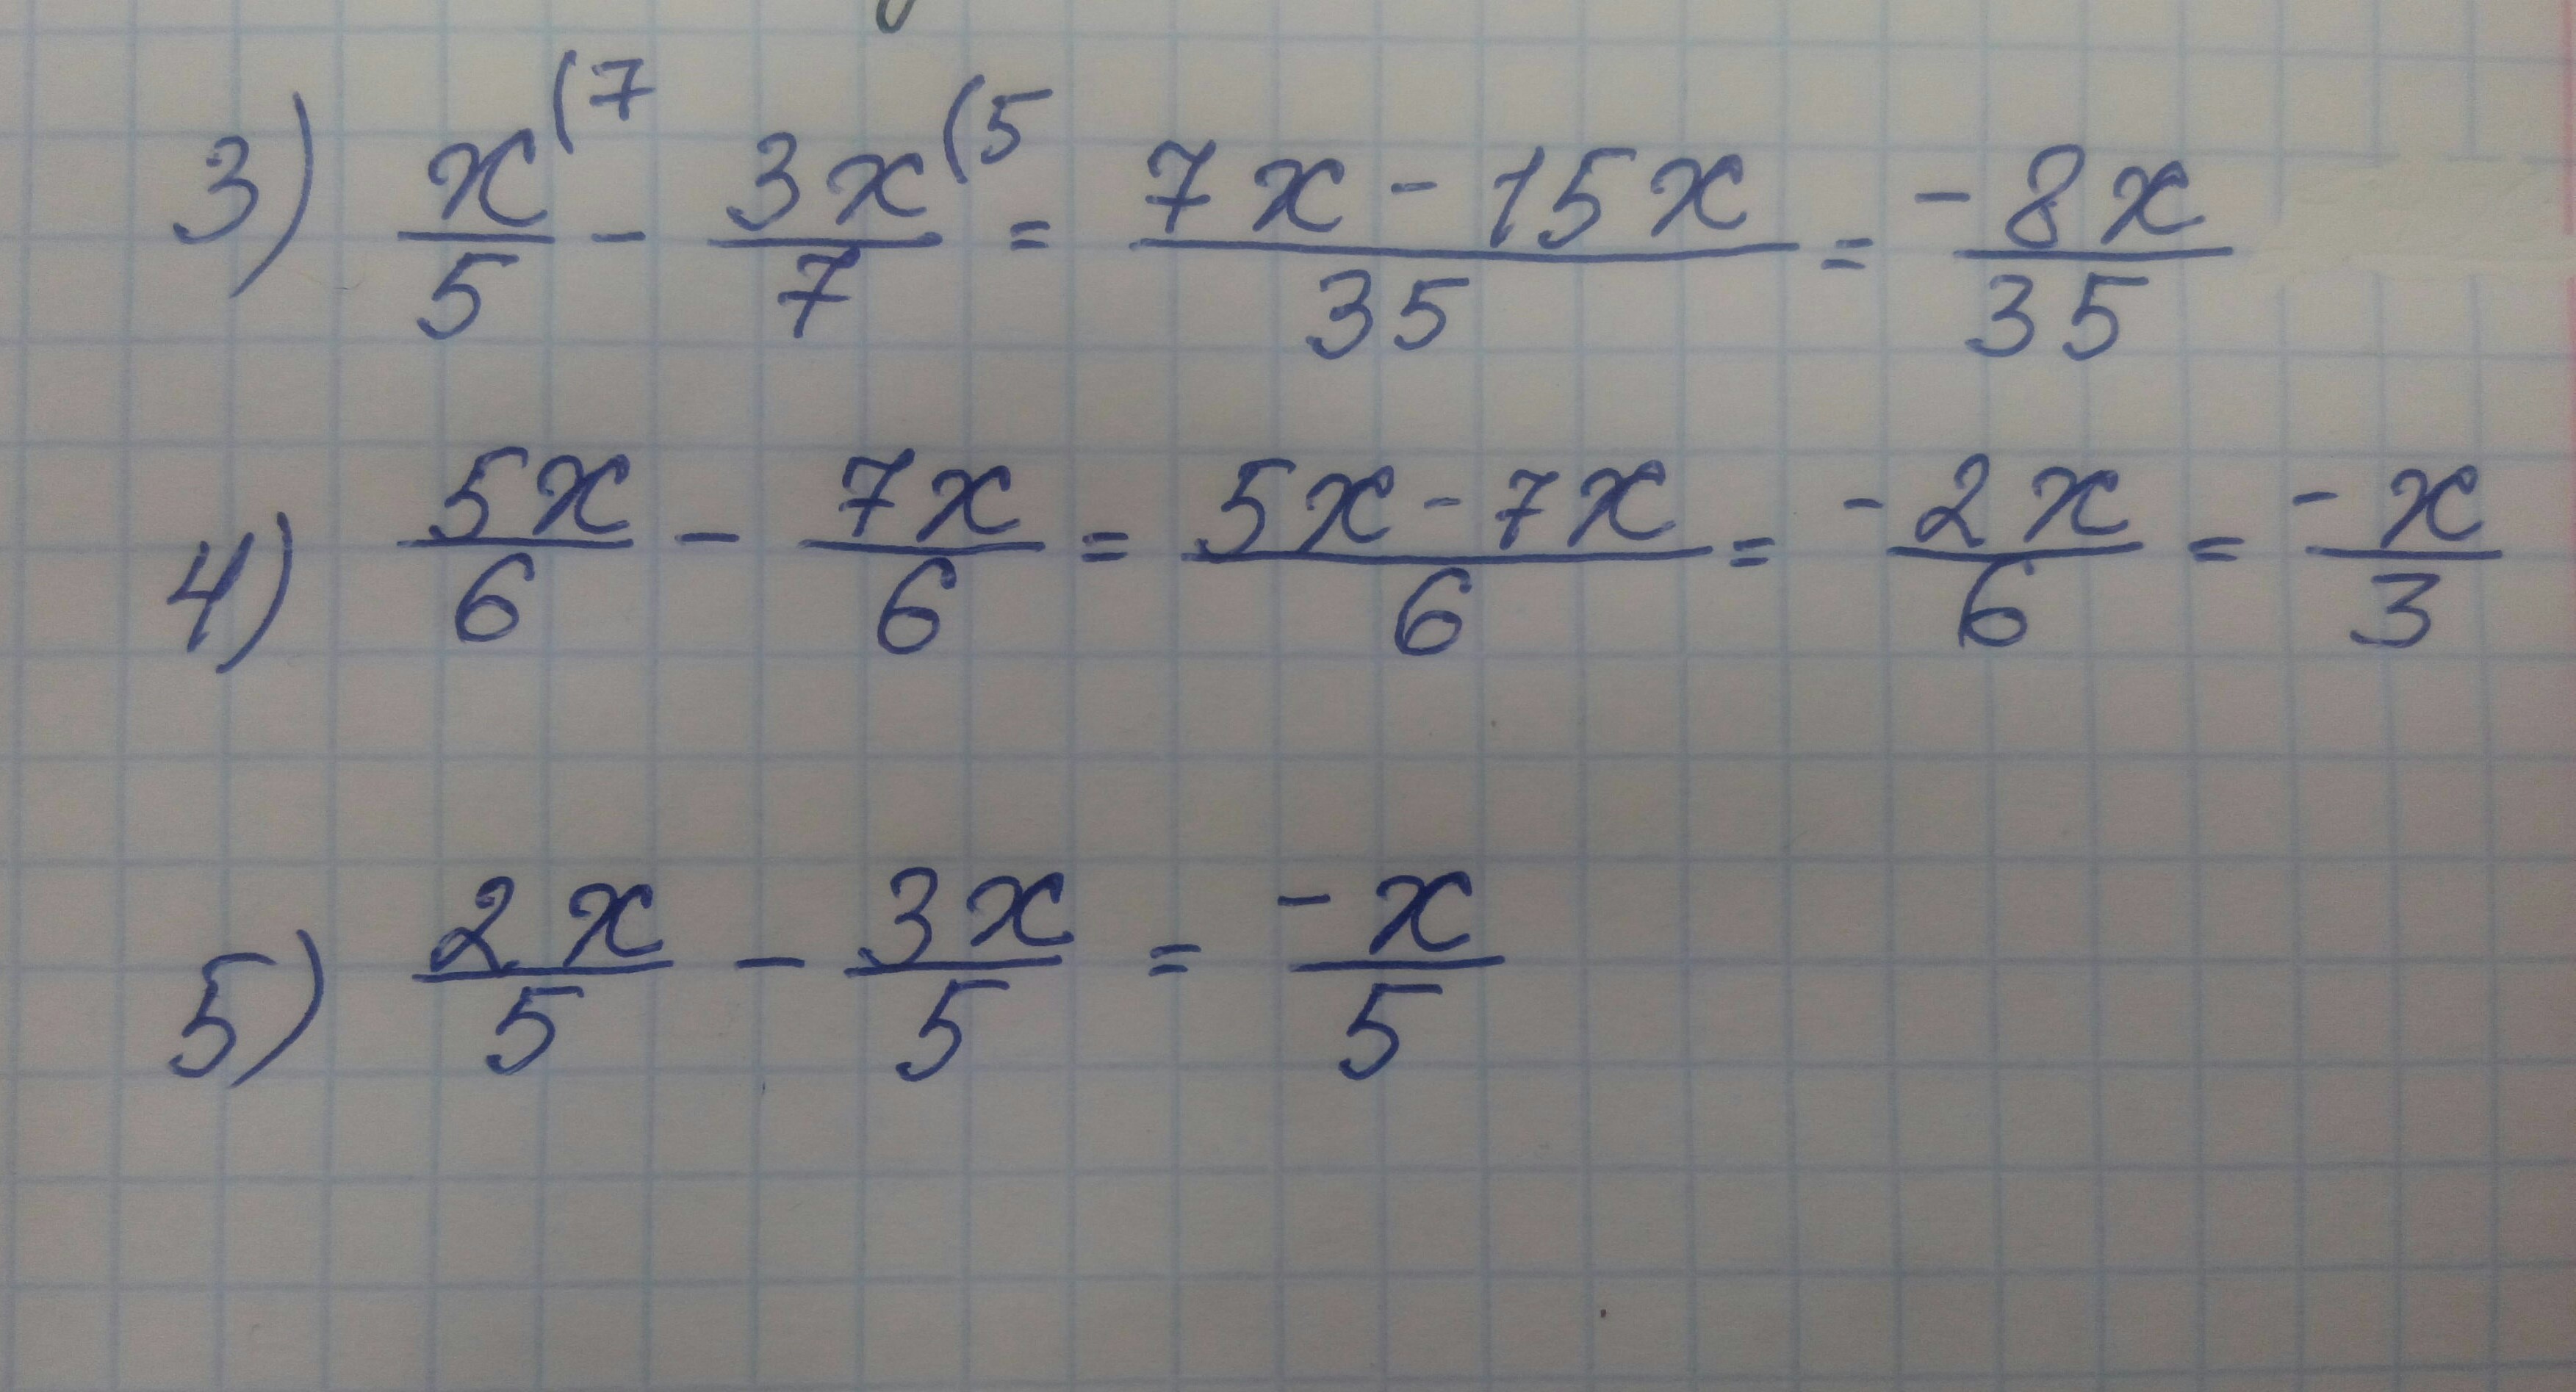 3) x/5 (7 - 3x/7 (5 = (7x - 15x)/35 = -8x/35
4) 5x/6 - 7x/6 = (5x - 7x)/6 = -2x/6 = -x/3
5) 2x/5 - 3x/5 = -x/5